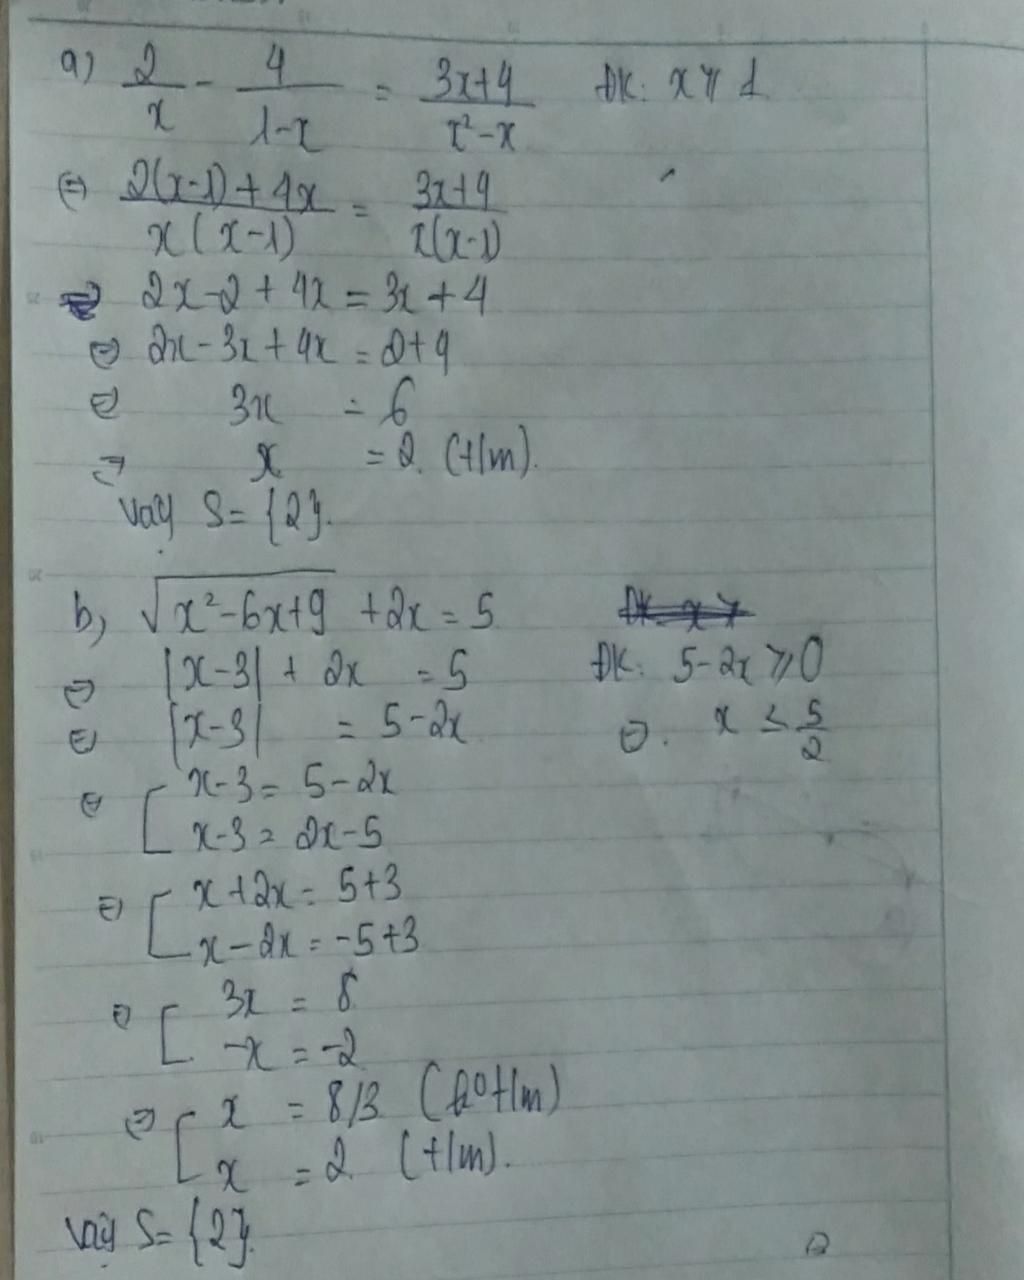 a) 2/x - 4/(1-x) = (3x+4)/(x²-x) ĐK: x ≥ 1
⇔ (2(x-1)+4x)/(x(x-1)) = (3x+4)/(x(x-1))
⇒ 2x-2+4x = 3x+4
⇔ 2x-3x+4x = 2+4
⇔ 3x = 6
⇔ x = 2 (t/m).
Vậy S = {2}.
b, √(x²-6x+9) +2x = 5
⇔ |x-3| + 2x = 5 ĐK: 5-2x ≥ 0
⇔ |x-3| = 5-2x ⇔. x ≤ 5/2
⇔ [ x-3 = 5-2x
x-3 = 2x-5
⇔ [ x+2x = 5+3
x-2x = -5+3
⇔ [ 3x = 8
-x = -2
⇔ [ x = 8/3 (ko t/m)
x = 2 (t/m).
Vậy S = {2}.